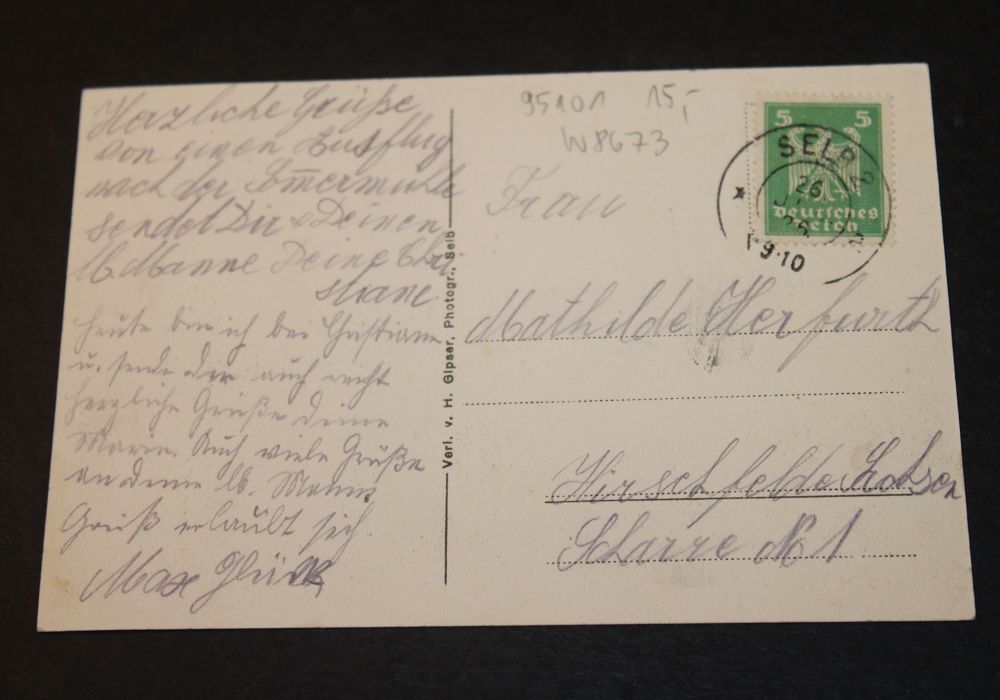 Herzliche Grüße
von einen Ausflug
nach der Sommermühle
sendet Dir & Deinen
lb. Manne Deine Chri
stiane
Heute bin ich bei Christiane
u. sende dir auch recht
herzliche Grüße deine
Marie. Auch viele Grüße
an deine lb. Mann
Gruß erlaubt sich
Max Glück
Verl. v. H. Gipser, Photogr., Selb
95101 15,-
W8673
5 5
Deutsches
Reich
SELB 2
26
26
9-10
Frau
Mathilde Herfurth
Hirschfelde Sachsen
No 1